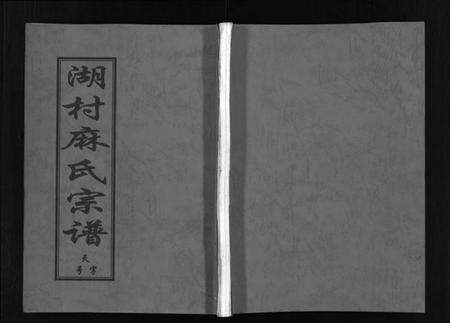 湖村麻氏宗谱
天字号